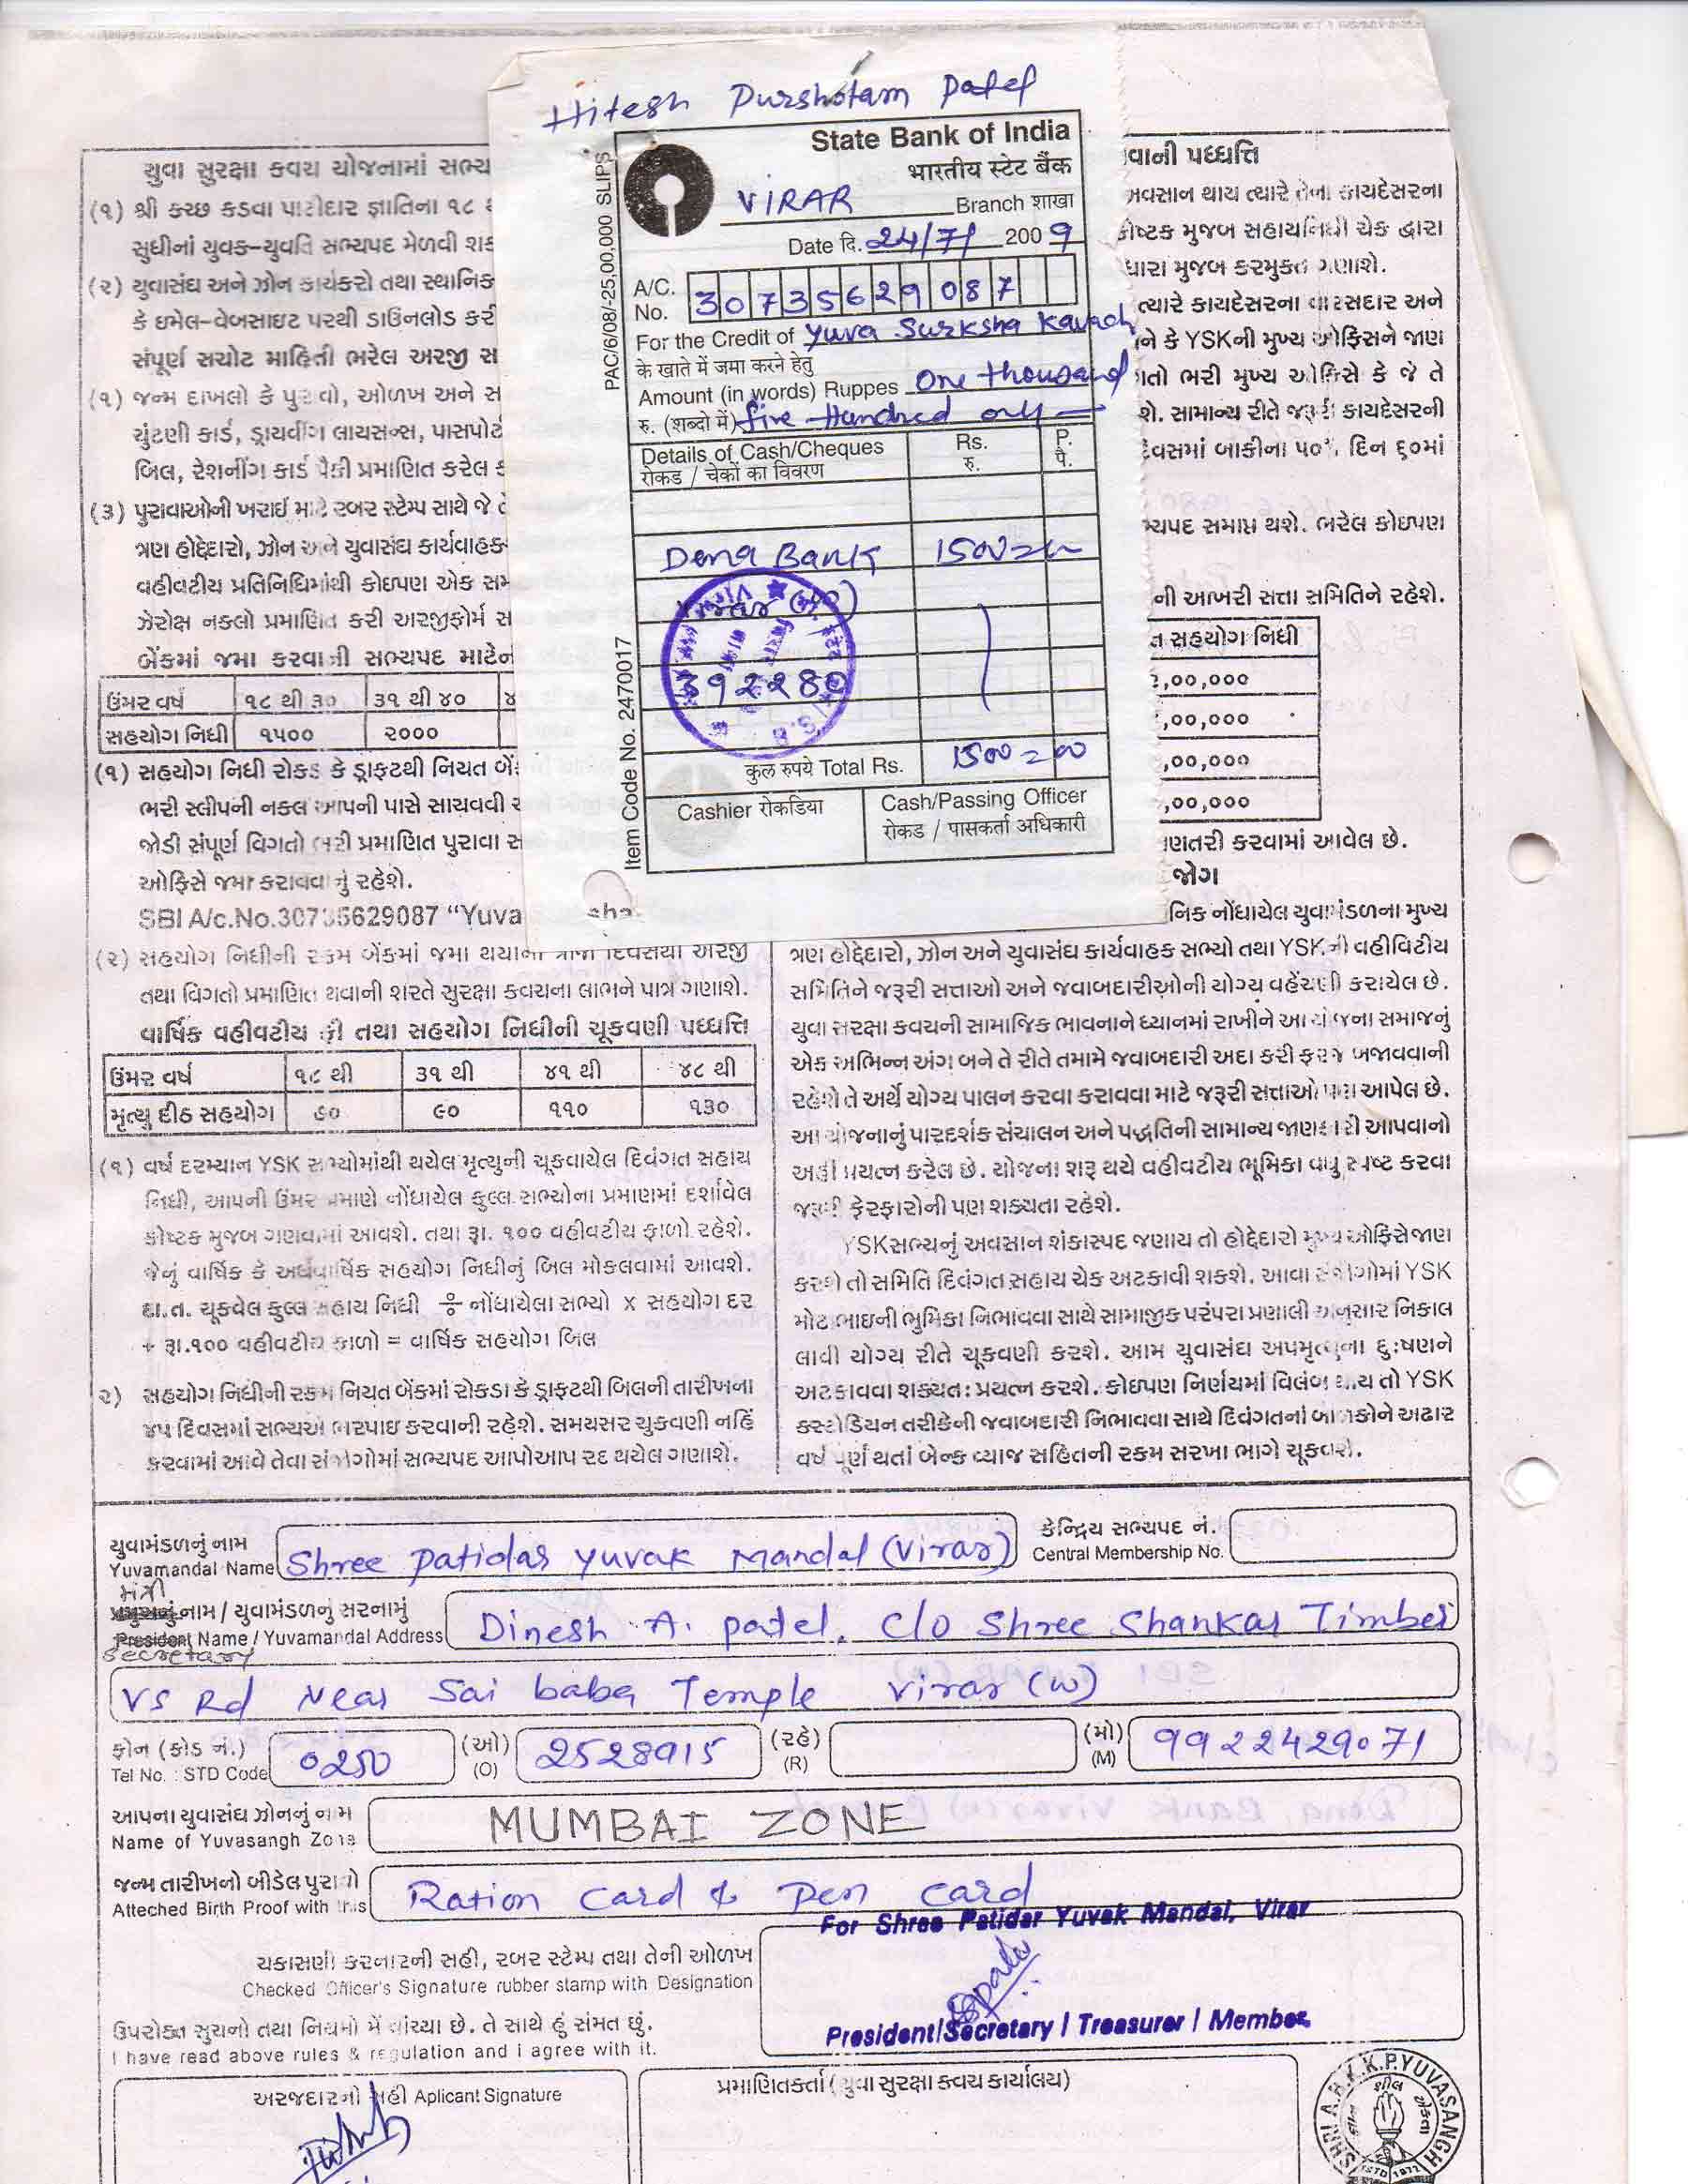 Hitesh Purshotam Patel
State Bank of India
भारतीय स्टेट बैंक
VIRAR Branch शाखा
Date दि. 24/7/ 2009
A/C. No. 30735629087
For the Credit of Yuva Surksha Kavach
के खाते में जमा करने हेतु
Amount (in words) Ruppes One thousand
रु. (शब्दो में) five Hundred only
Details of Cash/Cheques Rs. P.
रोकड / चेकों का विवरण रु. पै.
Dena Bank 1500=00
Virar (w)
392280
कुल रुपये Total Rs. 1500=00
Cashier रोकडिया Cash/Passing Officer
रोकड / पासकर्ता अधिकारी
PAC/6/08-25,00,000 SLIPS
Item Code No. 2470017
યુવા સુરક્ષા કવચ યોજનામાં સભ્ય
(૧) શ્રી કચ્છ કડવા પાટીદાર જ્ઞાતિના ૧૮
સુધીનાં યુવક-યુવતિ સભ્યપદ મેળવી શક
(૨) યુવાસંઘ અને ઝોન કાર્યકરો તથા સ્થાનિક
કે ઇમેલ-વેબસાઇટ પરથી ડાઉનલોડ કરી
સંપૂર્ણ સચોટ માહિતી ભરેલ અરજી સ
(૧) જન્મ દાખલો કે પુરાવો, ઓળખ અને સ
ચુંટણી કાર્ડ, ડ્રાયવીંગ લાયસન્સ, પાસપોર્ટ
બિલ, રેશનીંગ કાર્ડ પૈકી પ્રમાણિત કરેલ ક
(૩) પુરાવાઓની ખરાઈ માટે રબર સ્ટેમ્પ સાથે જે તે
ત્રણ હોદ્દેદારો, ઝોન અને યુવાસંઘ કાર્યવાહક
વહીવટીય પ્રતિનિધિમાંથી કોઇપણ એક સમ
ઝેરોક્ષ નકલો પ્રમાણિત કરી અરજીફોર્મ સ
બેંકમાં જમા કરવાની સભ્યપદ માટેન
ઉંમર વર્ષ ૧૮ થી ૩૦ ૩૧ થી ૪૦ ૪
સહયોગ નિધી ૧૫૦૦ ૨૦૦૦
(૧) સહયોગ નિધી રોકડ કે ડ્રાફટથી નિયત બેં
ભરી સ્લીપની નકલ આપની પાસે સાચવવી
જોડી સંપૂર્ણ વિગતો ભરી પ્રમાણિત પુરાવા સ
ઓફિસે જમા કરાવવાનું રહેશે.
SBI A/c.No.30735629087 “Yuva
(૨) સહયોગ નિધીની રકમ બેંકમાં જમા થયાના ત્રીજા દિવસથી અરજી
તથા વિગતો પ્રમાણિત થવાની શરતે સુરક્ષા કવચના લાભને પાત્ર ગણાશે.
વાર્ષિક વહીવટીય ફી તથા સહયોગ નિધીની ચૂકવણી પધ્ધતિ
ઉંમર વર્ષ ૧૮ થી ૩૧ થી ૪૧ થી ૪૮ થી
મૃત્યુ દીઠ સહયોગ ૯૦ ૧૧૦ ૧૩૦
(૧) વર્ષ દરમ્યાન YSK સભ્યોમાંથી થયેલ મૃત્યુની ચૂકવાયેલ દિવંગત સહાય
નિધી, આપની ઉંમર પ્રમાણે નોંધાયેલ કુલ્લ સભ્યોના પ્રમાણમાં દર્શાવેલ
કોષ્ટક મુજબ ગણવામાં આવશે. તથા રૂા. ૧૦૦ વહીવટીય ફાળો રહેશે.
જેનું વાર્ષિક કે અર્ધવાર્ષિક સહયોગ નિધીનું બિલ મોકલવામાં આવશે.
દા.ત. ચૂકવેલ કુલ્લ સહાય નિધી ÷ નોંધાયેલા સભ્યો x સહયોગ દર
+ રૂા.૧૦૦ વહીવટીય ફાળો = વાર્ષિક સહયોગ બિલ
૨) સહયોગ નિધીની રકમ નિયત બેંકમાં રોકડા કે ડ્રાફટથી બિલની તારીખના
૪૫ દિવસમાં સભ્યએ ભરપાઇ કરવાની રહેશે. સમયસર ચુકવણી નહિં
કરવામાં આવે તેવા સંજોગોમાં સભ્યપદ આપોઆપ રદ થયેલ ગણાશે.
વાની પધ્ધતિ
અવસાન થાય ત્યારે તેના કાયદેસરના
કોષ્ટક મુજબ સહાયનિધી ચેક દ્વારા
ધારા મુજબ કરમુક્ત ગણાશે.
ત્યારે કાયદેસરના વારસદાર અને
ને કે YSKની મુખ્ય ઓફિસને જાણ
ગતો ભરી મુખ્ય ઓફિસે કે જે તે
શે. સામાન્ય રીતે જરૂરી કાયદેસરની
દિવસમાં બાકીના ૫૦% દિન ૬૦માં
ભ્યપદ સમાપ્ત થશે. ભરેલ કોઇપણ
ની આખરી સત્તા સમિતિને રહેશે.
ત સહયોગ નિધી
,૦૦,૦૦૦
,૦૦,૦૦૦
,૦૦,૦૦૦
,૦૦,૦૦૦
ણતરી કરવામાં આવેલ છે.
જોગ
નિક નોંધાયેલ યુવામંડળના મુખ્ય
ત્રણ હોદ્દેદારો, ઝોન અને યુવાસંઘ કાર્યવાહક સભ્યો તથા YSKની વહીવિટીય
સમિતિને જરૂરી સત્તાઓ અને જવાબદારીઓની યોગ્ય વહેંચણી કરાયેલ છે.
યુવા સરક્ષા કવચની સામાજિક ભાવનાને ધ્યાનમાં રાખીને આ યોજના સમાજનું
એક અભિન્ન અંગ બને તે રીતે તમામે જવાબદારી અદા કરી ફરજ બજાવવાની
રહેશે તે અર્થે યોગ્ય પાલન કરવા કરાવવા માટે જરૂરી સત્તાઓ પણ આપેલ છે.
આ યોજનાનું પારદર્શક સંચાલન અને પદ્ધતિની સામાન્ય જાણકારી આપવાનો
અત્રે પ્રયત્ન કરેલ છે. યોજના શરૂ થયે વહીવટીય ભૂમિકા વધુ સ્પષ્ટ કરવા
જરૂરી ફેરફારોની પણ શક્યતા રહેશે.
YSKસભ્યનું અવસાન શંકાસ્પદ જણાય તો હોદ્દેદારો મુખ્ય ઓફિસે જાણ
કરશે તો સમિતિ દિવંગત સહાય ચેક અટકાવી શકશે. આવા સંજોગોમાં YSK
મોટાભાઇની ભુમિકા નિભાવવા સાથે સામાજીક પરંપરા પ્રણાલી અનુસાર નિકાલ
લાવી યોગ્ય રીતે ચૂકવણી કરશે. આમ યુવાસંઘ અપમૃત્યુના દુઃષણને
અટકાવવા શક્યતઃ પ્રયત્ન કરશે. કોઇપણ નિર્ણયમાં વિલંબ થાય તો YSK
કસ્ટોડિયન તરીકેની જવાબદારી નિભાવવા સાથે દિવંગતનાં બાળકોને અઢાર
વર્ષ પૂર્ણ થતાં બેન્ક વ્યાજ સહિતની રકમ સરખા ભાગે ચૂકવશે.
યુવામંડળનું નામ
Yuvamandal Name Shree Patidar Yuvak Mandal (Virar)
કેન્દ્રિય સભ્યપદ નં.
Central Membership No.
મંત્રી
પ્રમુખનું નામ / યુવામંડળનું સરનામું
President Name / Yuvamandal Address Dinesh A. Patel. C/o Shree Shankar Timber
Secretary
VS Rd Near Sai baba Temple Virar (W)
ફોન (કોડ નં.) (ઓ) (રહે) (મો)
Tel No. : STD Code 0250 (O) 2528915 (R) (M) 9922429071
આપના યુવાસંઘ ઝોનનું નામ
Name of Yuvasangh Zone MUMBAI ZONE
જન્મ તારીખનો બીડેલ પુરાવો
Atteched Birth Proof with this Ration Card & Pen Card
For Shree Patidar Yuvak Mandal, Virar
ચકાસણી કરનારની સહી, રબર સ્ટેમ્પ તથા તેની ઓળખ
Checked Officer's Signature rubber stamp with Designation
President/Secretary / Treasurer / Member
ઉપરોક્ત સુચનો તથા નિયમો મેં વાંચ્યા છે. તે સાથે હું સંમત છું.
I have read above rules & regulation and i agree with it.
અરજદારની સહી Aplicant Signature
પ્રમાણિતકર્તા (યુવા સુરક્ષા કવચ કાર્યાલય)
SHRI A.B.K.K.P.YUVASANGH